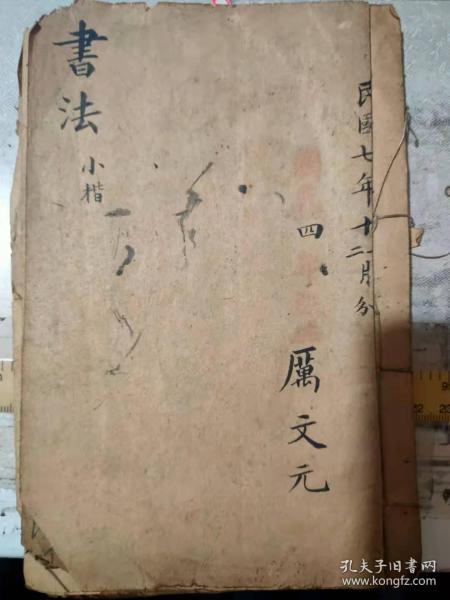 民國七年十二月分
四
厲文元
書法
小楷
孔夫子旧书网
www.kongfz.com